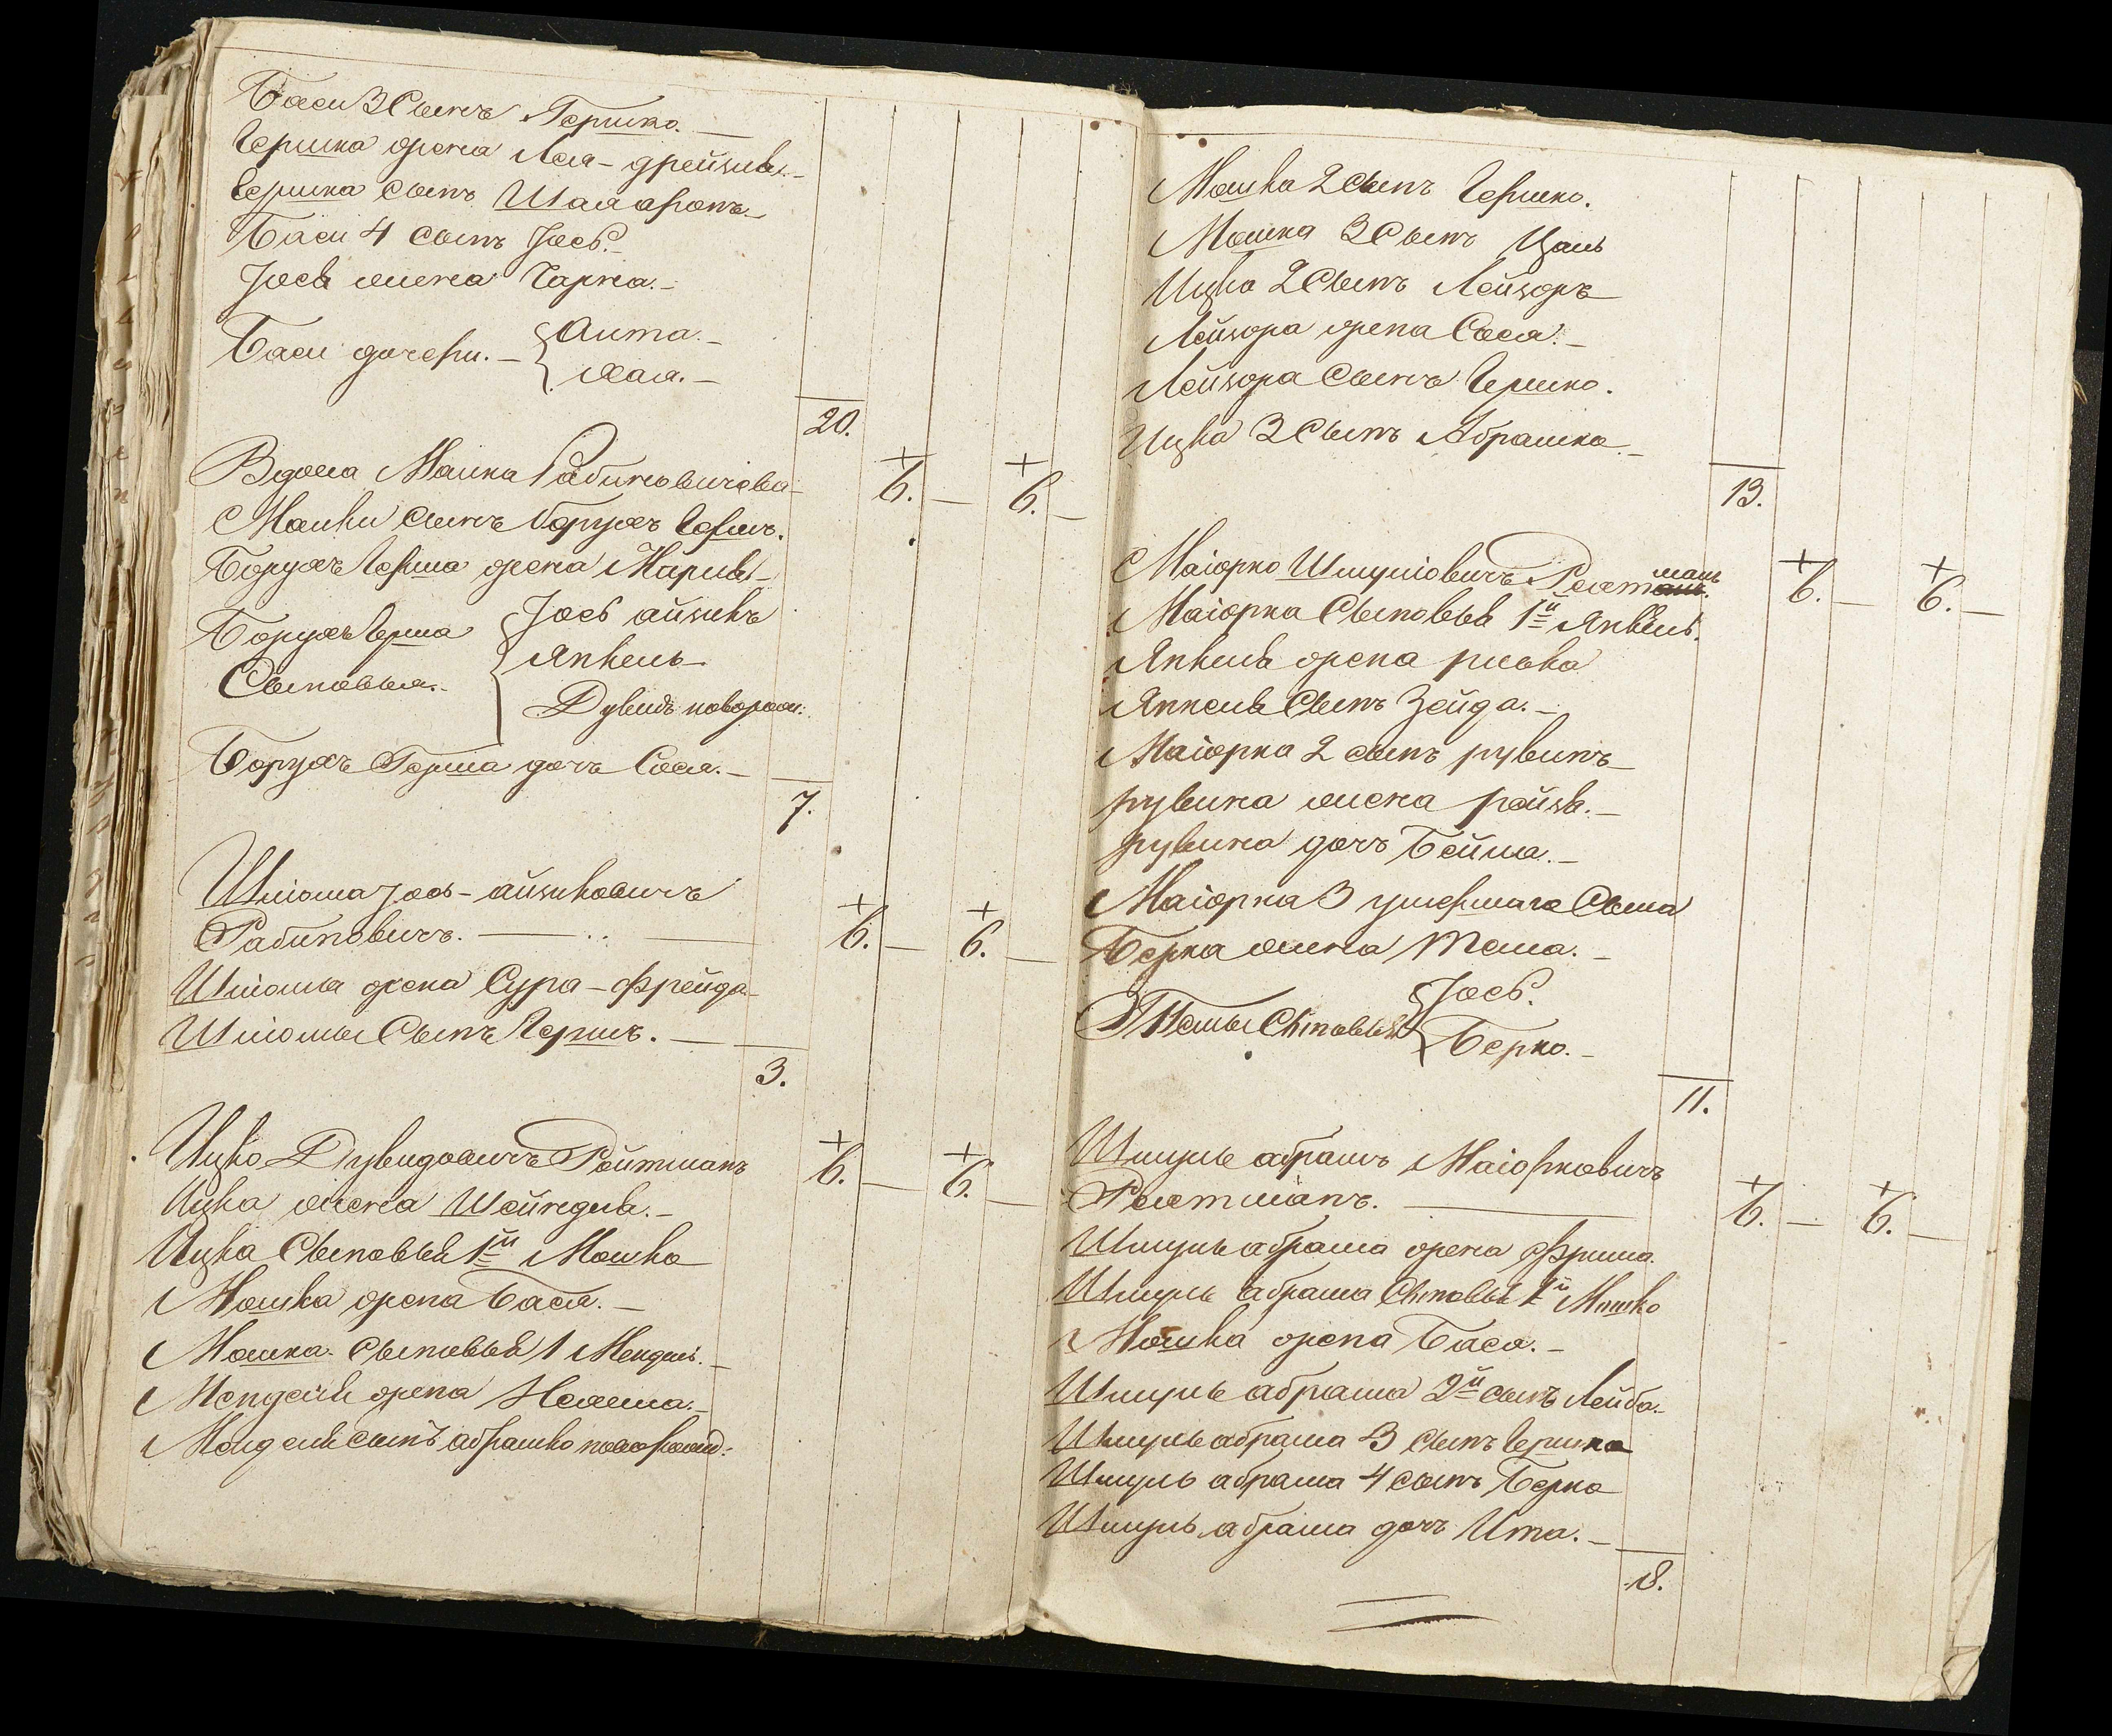 Баси 3 Сынъ Гершко. —
Гершка жена Лея - Дрейзя. —
Гершка сынъ Шлаа аронъ. —
Баси 4 сынъ Іосъ. —
Іося жена Чарна. —
Баси дочери. — { Аита. —
Хая. —
20.
Вдова Малка Рабиновичова — + 6. — + 6. —
Малки сынъ Борухъ Гершъ.
Борухъ Герша жена Маріи —
Борухъ Герша { Іосъ айзикъ
Сыновья. — Янкель —
Дувидъ новорожд:
Борухъ Герша дочъ Сося. —
7.
Шліома Іось - айзиковичъ
Рабиновичъ. — + 6. — + 6. —
Шліомы жена Сура - фрейда —
Шліомы Сынъ Гершъ. —
3.
Ицко Дувидовичъ Ройтманъ + 6. — + 6. —
Ицка жена Шейндля. —
Ицка Сыновья 1й Мошко
Мошка жена Бася. —
Мошка Сыновья 1 Мендель. —
Менделя жена
Менделя сынъ абрашко новорожд:
Мошка 2 Сынъ Гершко.
Мошка 3 Сынъ
Ицка 2 Сынъ Лейзоръ
Лейзора жена Сося. —
Лейзора Сынъ Гершко.
Ицка 3 Сынъ Абрашко. —
13.
Маіорко Шмуліовичъ Рейтманъ + 6. — + 6. —
Маіорка Сыновья 1й Янкель.
Янкеля жена ривка
Янкеля Сынъ Зейда. —
Маіорка 2 сынъ рувинъ —
рувина жена рейзя. —
рувина дочъ Бейла. —
Маіорка 3 умершаго Сына
Берка жена Тема. —
Темы Сыновья { Іосъ.
Берко. —
11.
Шмуль абрамъ Маіорковичъ
Рейтманъ. — + 6. — + 6. —
Шмуль абрама жена Фрима.
Шмуль абрама Сыновья 1й Мошко
Мошка жена Бася. —
Шмуль абрама 2й сынъ Лейба. —
Шмуль абрама 3 сынъ Гершко
Шмуль абрама 4 сынъ Берко
Шмуль абрама дочъ Ита. —
8.